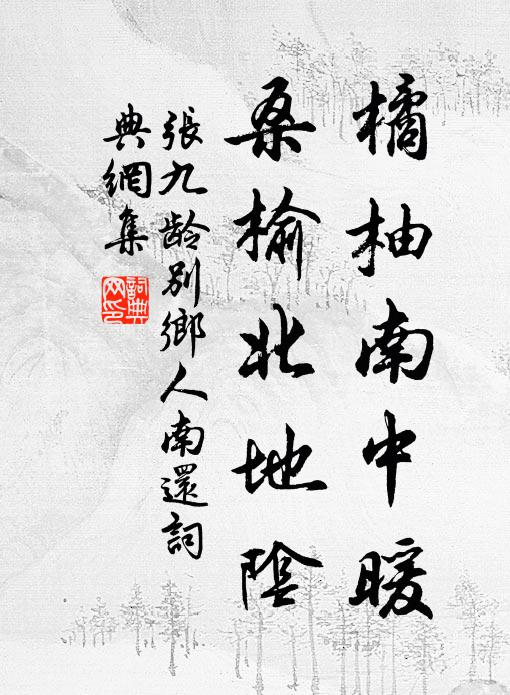 橘柚南中暖
桑榆北地陰
張九龄別鄉人南還詞
典網集
詞典网印